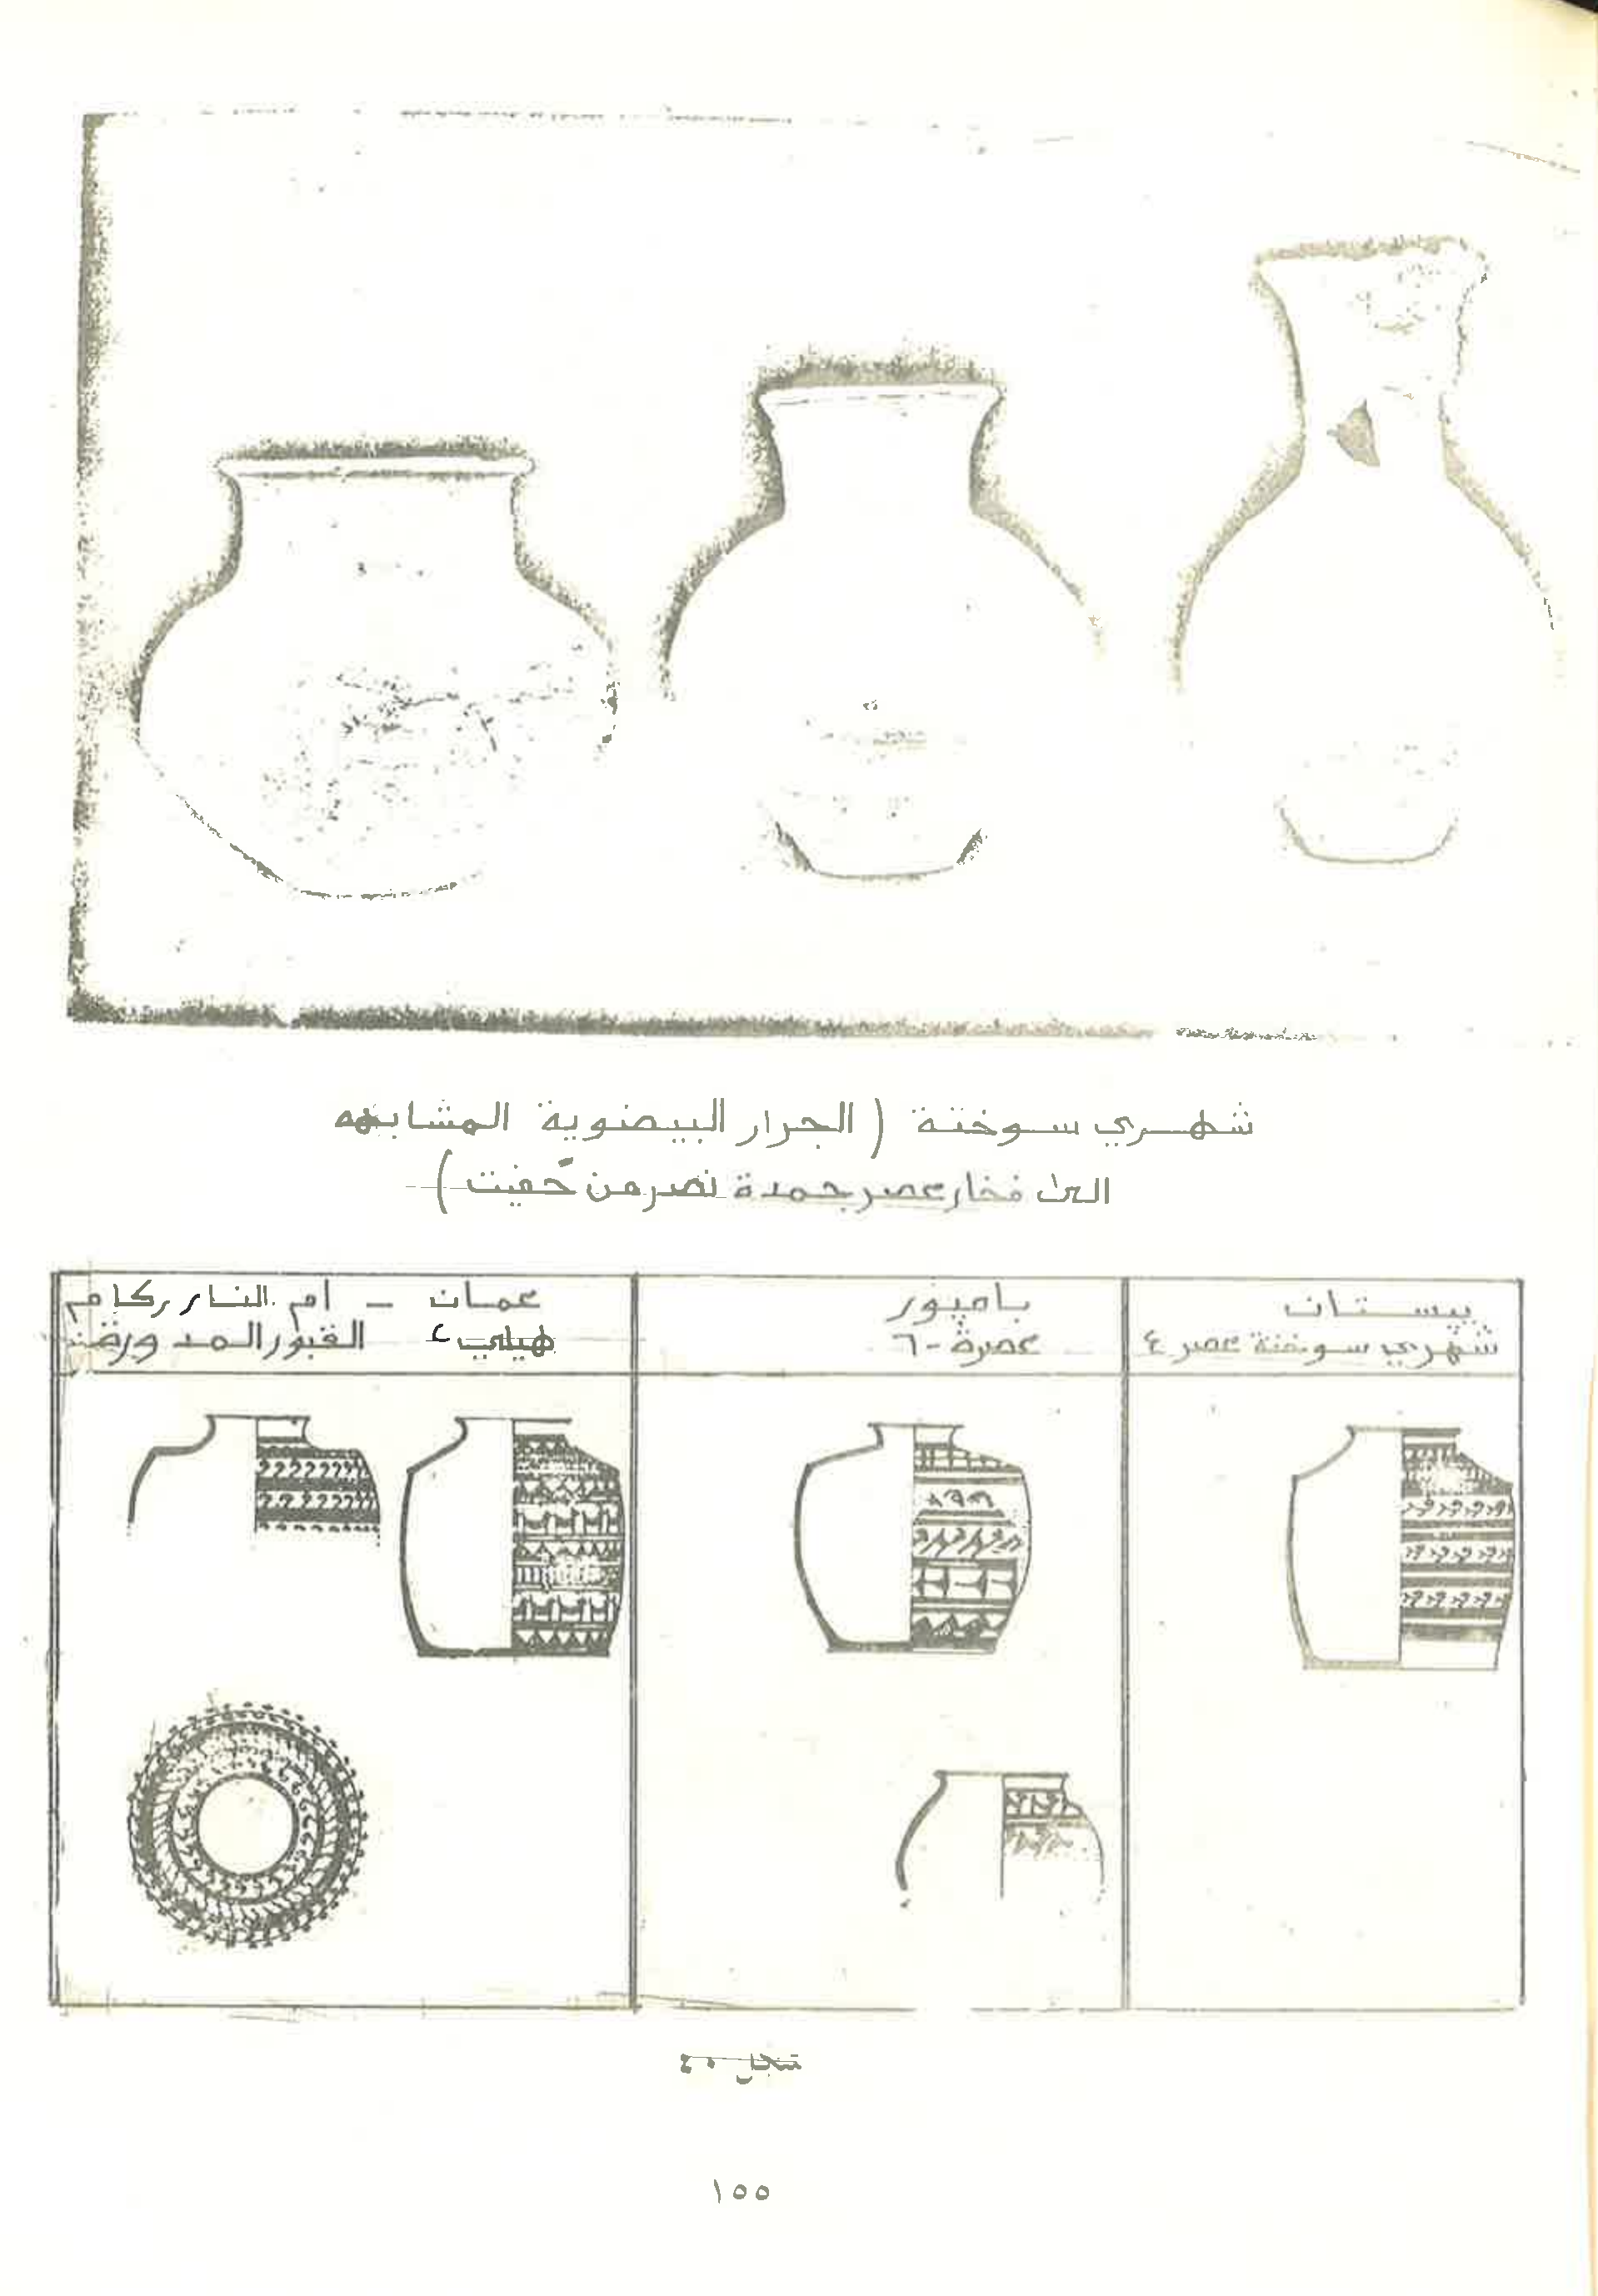 شهري سوختة (الجرار البيضوية المشابهه
الى فخار عصر جمدة نصر من حفيت)
بيستان
شهري سوختة عصر ٤
بامبور
عصرة - ٦
عمان - ام النار ركام
هيلي القبور المد ورقة
شكل ٤٠
١٥٥